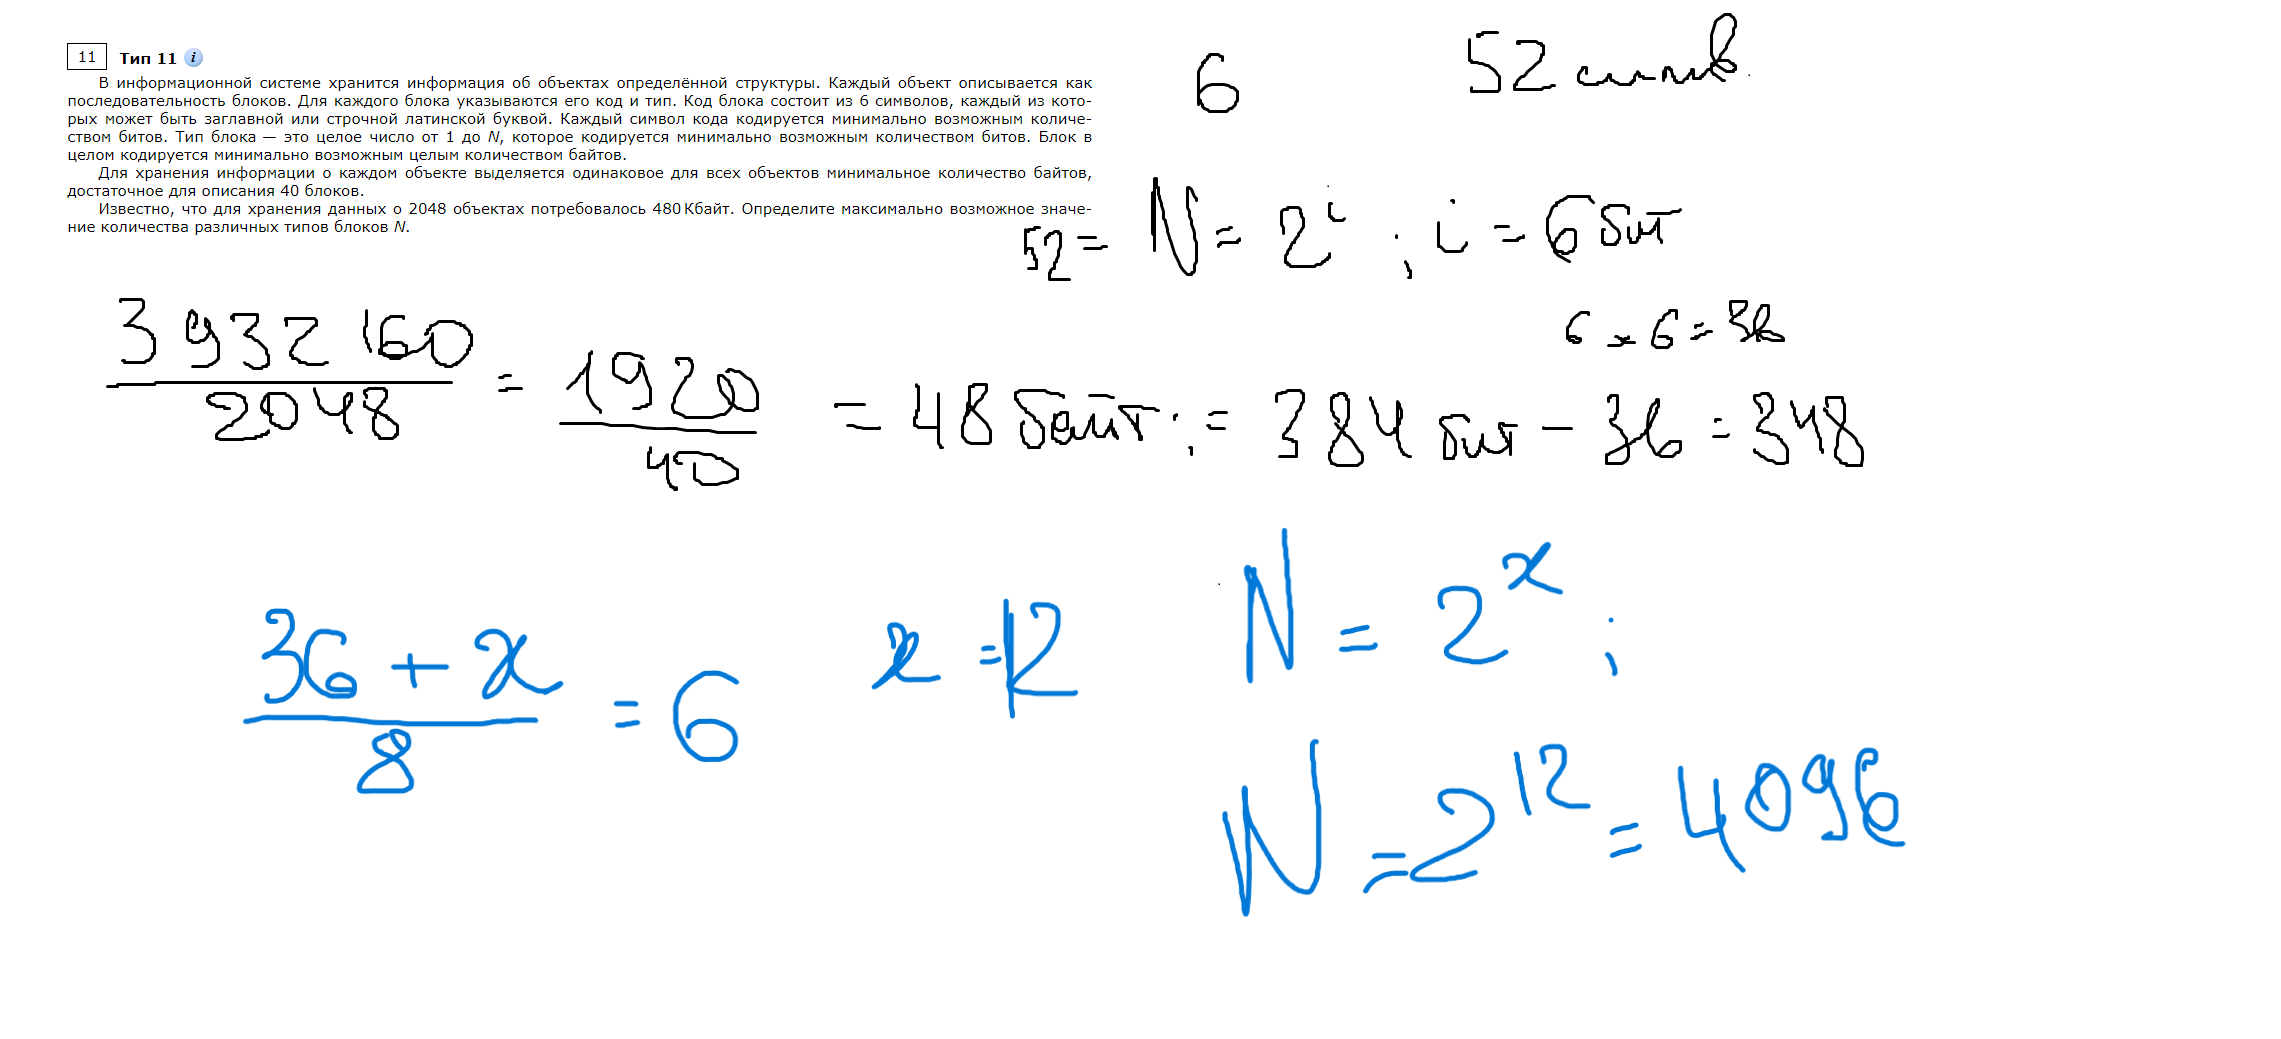 11 Тип 11 i
В информационной системе хранится информация об объектах определённой структуры. Каждый объект описывается как
последовательность блоков. Для каждого блока указываются его код и тип. Код блока состоит из 6 символов, каждый из кото-
рых может быть заглавной или строчной латинской буквой. Каждый символ кода кодируется минимально возможным количе-
ством битов. Тип блока — это целое число от 1 до N, которое кодируется минимально возможным количеством битов. Блок в
целом кодируется минимально возможным целым количеством байтов.
Для хранения информации о каждом объекте выделяется одинаковое для всех объектов минимальное количество байтов,
достаточное для описания 40 блоков.
Известно, что для хранения данных о 2048 объектах потребовалось 480 Кбайт. Определите максимально возможное значе-
ние количества различных типов блоков N.
6 52
52 = N = 2^i ; i = 6 бит
6 × 6 = 36
3932160 / 2048 = 1920 / 40 = 48 байт ; = 384 бит - 36 = 348
(36 + x) / 8 = 6 x = 12 N = 2^x ;
N = 2^12 = 4096